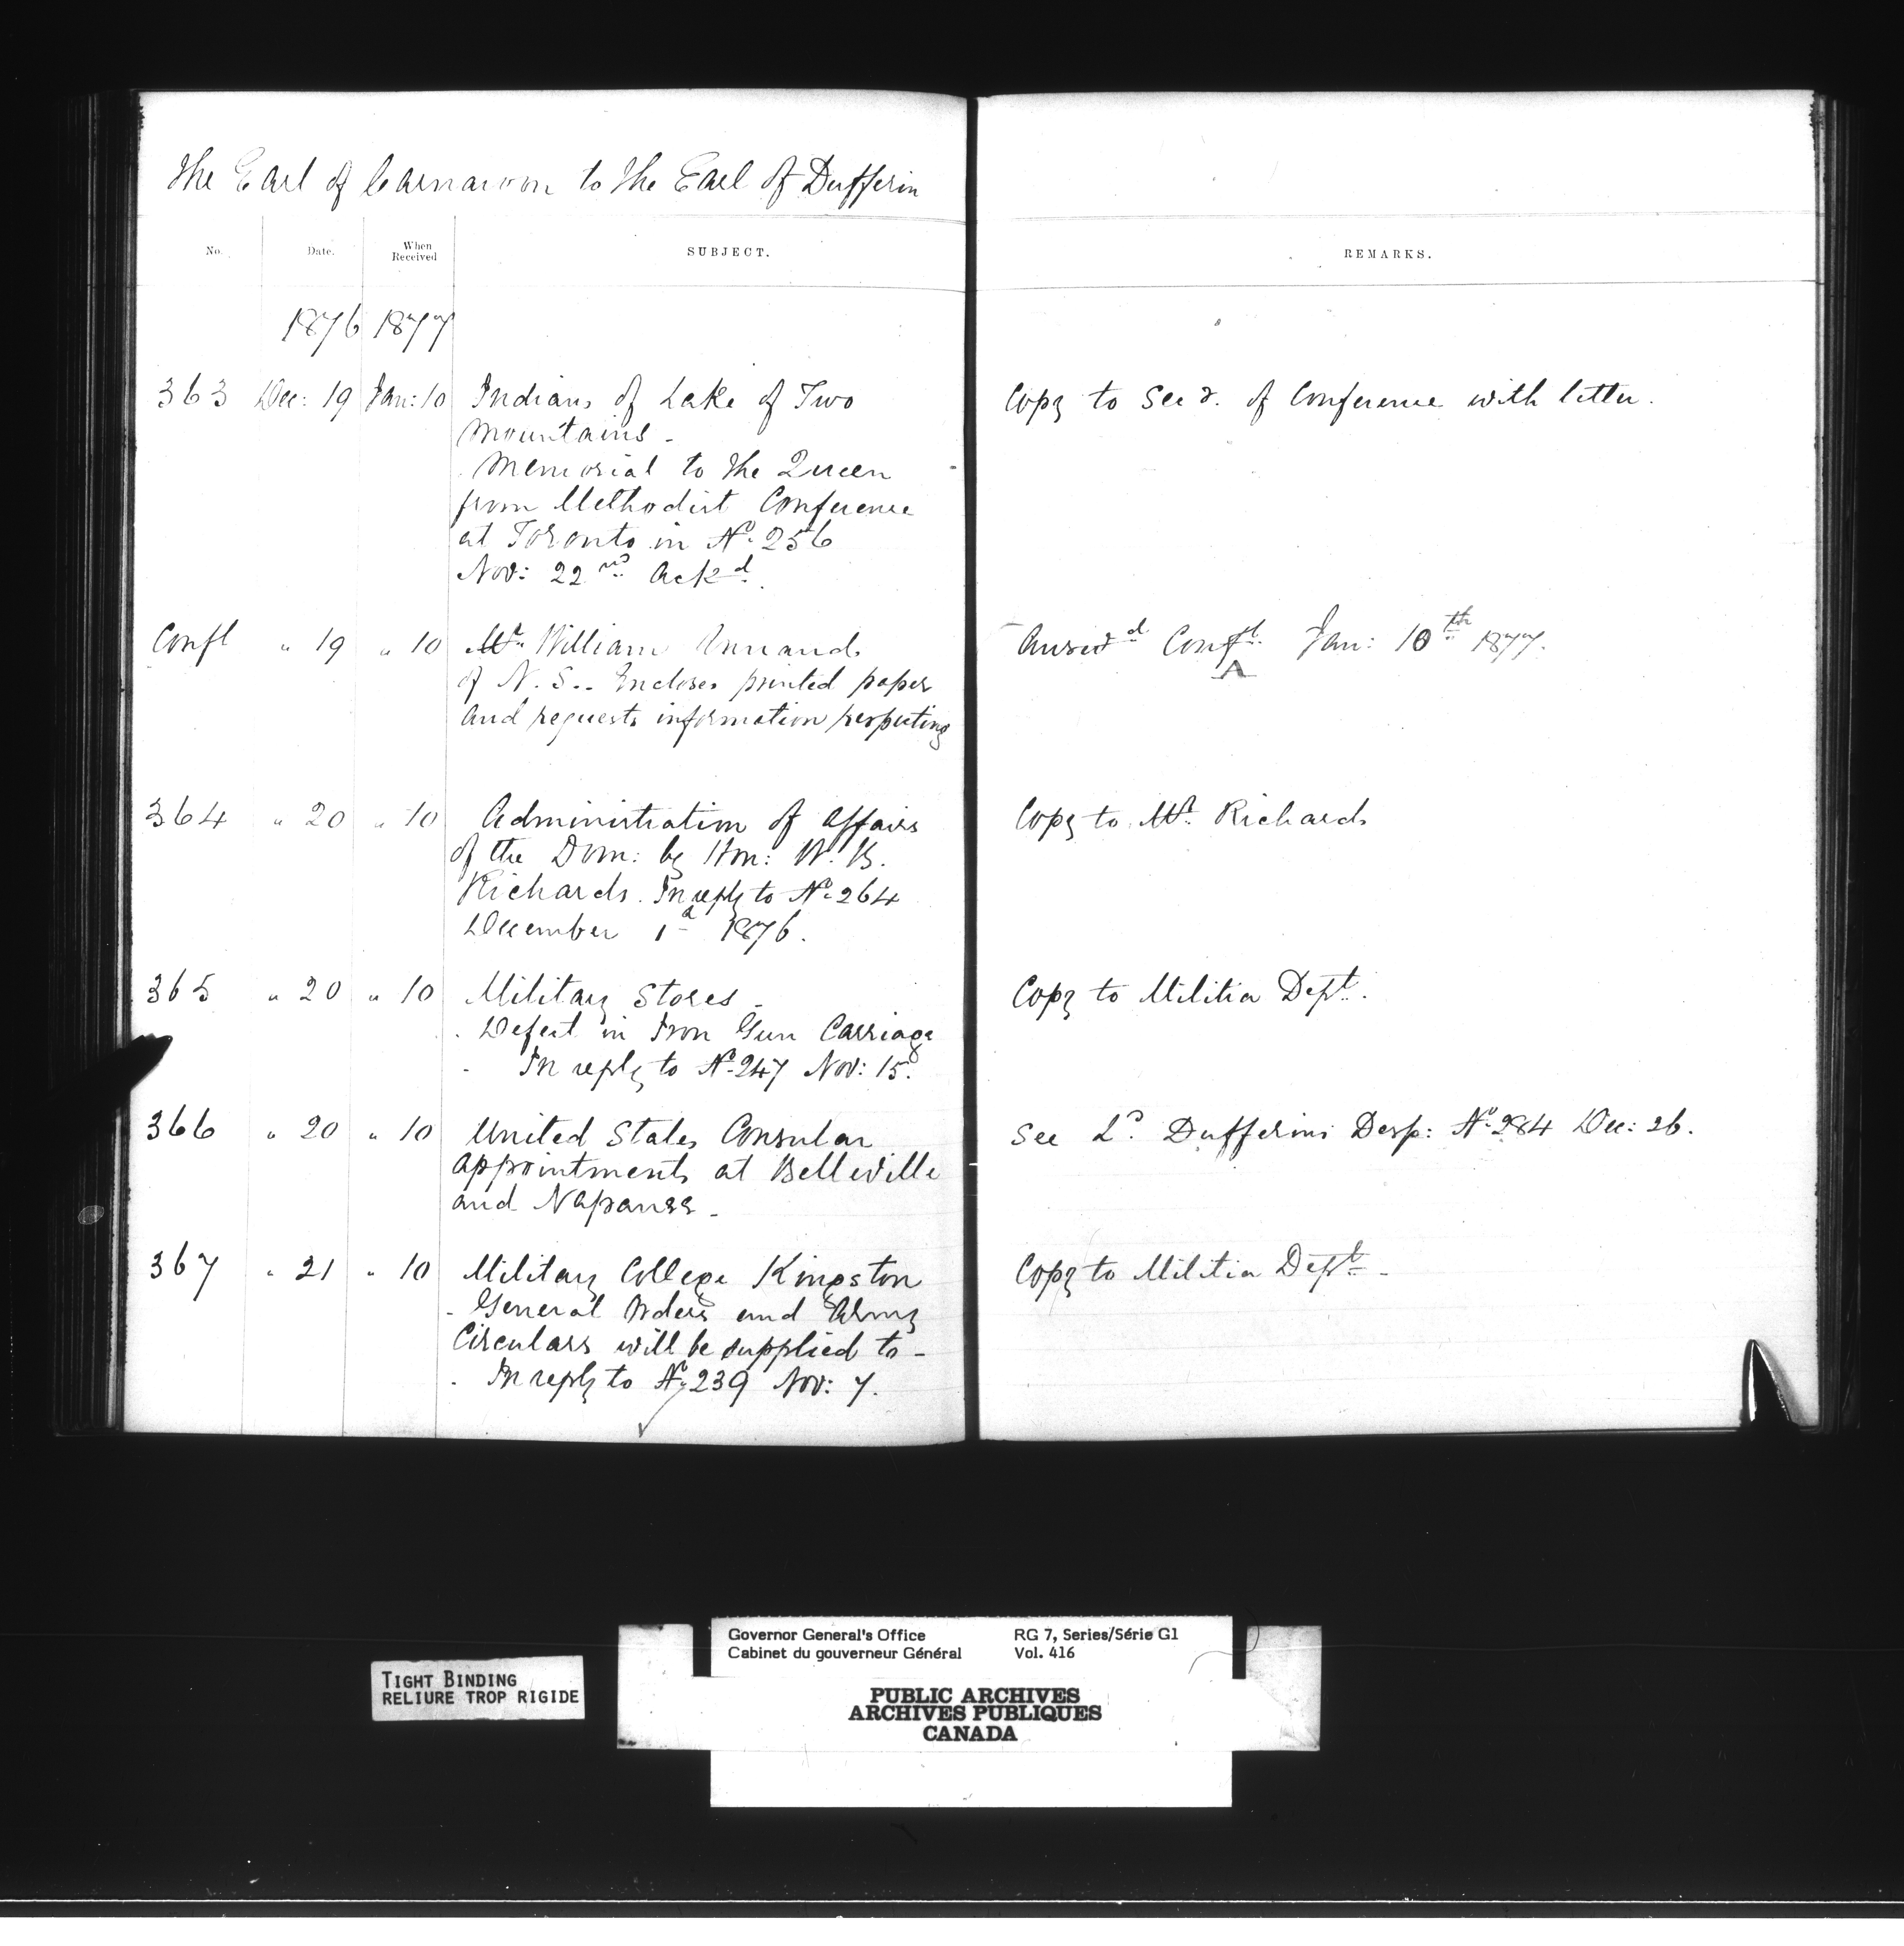 The Earl of Carnarvon to the Earl of Dufferin
No. Date. When Received SUBJECT. REMARKS.
1876 1877
363 Dec: 19 Jan: 10 Indians of Lake of Two Copy to Secy. of Conference with letter.
Mountains -
Memorial to the Queen
from Methodist Conference
at Toronto in No. 256
Nov: 22nd Ackd.
Confl " 19 " 10 Mr. William Annand Answd Confl. Jan: 10th 1877.
A
of N. S.. Encloses printed paper
and requests information respecting
364 " 20 " 10 Administration of affairs Copy to Mr. Richards
of the Dom: by Hon: W. B.
Richards. In reply to No. 264
December 1st 1876.
365 " 20 " 10 Military Stores - Copy to Militia Dept.
- Defect in Iron Gun Carriage
- In reply to No. 247 Nov: 15.
366 " 20 " 10 United States Consular See Ld. Dufferins Desp: No. 284 Dec: 26.
appointments at Belleville
and Napanee -
367 " 21 " 10 Military College Kingston Copy to Militia Dept. -
- General Orders and Army
Circulars will be supplied to -
- In reply to No. 239 Nov: 7.
Governor General's Office RG 7, Series/Série G1
Cabinet du gouverneur Général Vol. 416
TIGHT BINDING
RELIURE TROP RIGIDE
PUBLIC ARCHIVES
ARCHIVES PUBLIQUES
CANADA